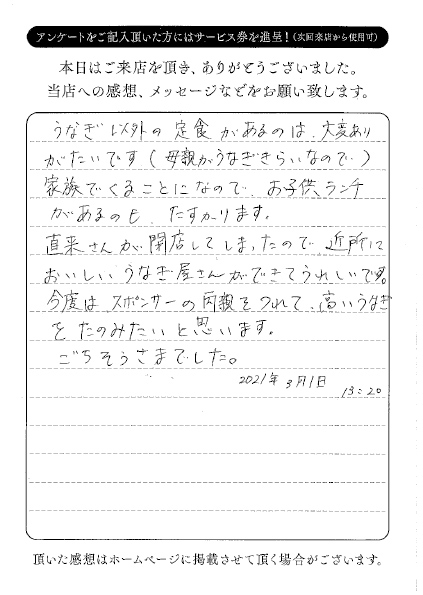 アンケートをご記入頂いた方にはサービス券を進呈！(次回来店から使用可)
本日はご来店を頂き、ありがとうございました。
当店への感想、メッセージなどをお願い致します。
うなぎ以外の定食があるのは、大変あり
がたいです(母親がうなぎきらいなので)
家族でくることになので、お子供ランチ
があるのも、たすかります。
直来さんが閉店してしまったので、近所に
おいしいうなぎ屋さんができてうれしいです。
今度はスポンサーの両親をつれて、高いうなぎ
をたのみたいと思います。
ごちそうさまでした。
2021年3月1日
13:20
頂いた感想はホームページに掲載させて頂く場合がございます。